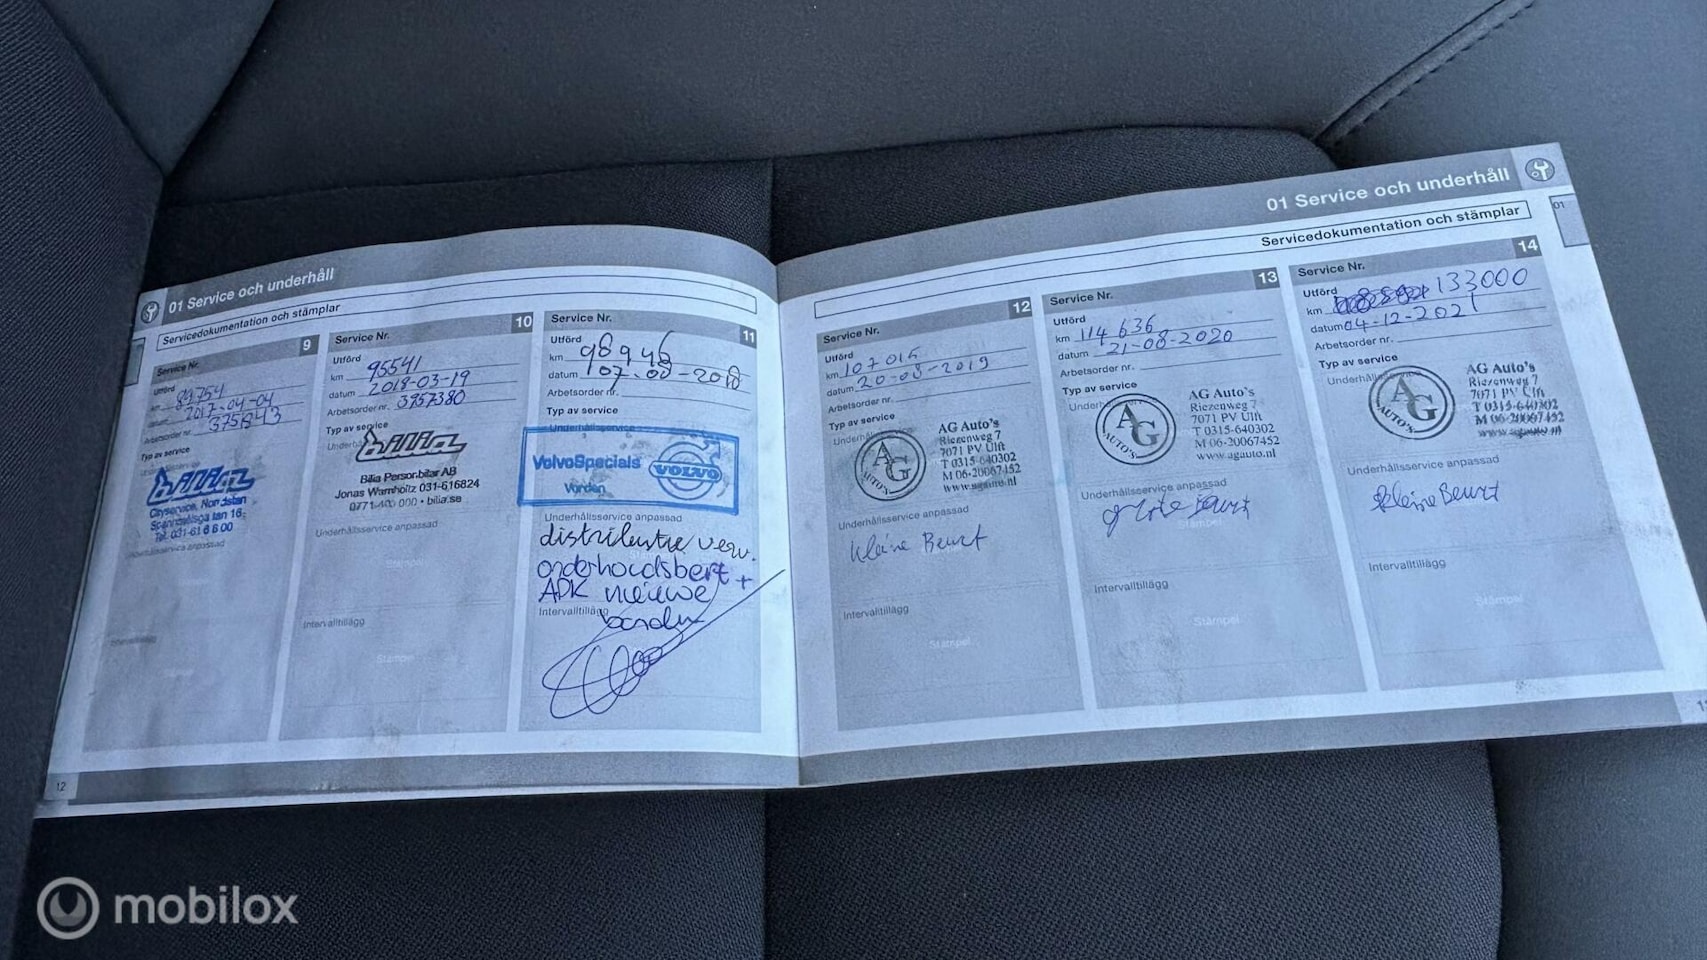 01 Service och underhåll
Servicedokumentation och stämplar
9
Service Nr.
Utförd
km 89754
datum 2017-04-04
Arbetsorder nr. 375843
Typ av service
bilia
Cityservice, Nordstan
Tel. 031-61
Underhållsservice anpassad
10
Service Nr.
Utförd
km 95541
datum 2018-03-19
Arbetsorder nr. 3957380
Typ av service
bilia
Bilia Personbilar AB
Jonas Warnholtz 031-616824
0771-400 000 • bilia.se
Underhållsservice anpassad
Intervalltillägg
Stämpel
11
Service Nr.
Utförd
km 98946
datum 07-08-2018
Arbetsorder nr.
Typ av service
Underhållsservice
VolvoSpecials
VOLVO
Vorden
Underhållsservice anpassad
distributie verv.
onderhoudsbeurt +
APK nieuwe
Intervalltillägg
banden
12
01 Service och underhåll
Servicedokumentation och stämplar
01
12
Service Nr.
Utförd
km 107015
datum 20-08-2019
Arbetsorder nr.
Typ av service
Underhållsservice
AG
AUTO'S
AG Auto's
Riezenweg 7
7071 PV Ulft
T 0315-640302
M 06-20067452
www.agauto.nl
Underhållsservice anpassad
kleine Beurt
Intervalltillägg
Stämpel
13
Service Nr.
Utförd
km 114636
datum 21-08-2020
Arbetsorder nr.
Typ av service
AG
AUTO'S
AG Auto's
Riezenweg 7
7071 PV Ulft
T 0315-640302
M 06-20067452
www.agauto.nl
Underhållsservice anpassad
grote Beurt
Stämpel
Intervalltillägg
Stämpel
14
Service Nr.
Utförd
km 133000
datum 04-12-2021
Arbetsorder nr.
Typ av service
AG
AUTO'S
AG Auto's
Riezenweg 7
7071 PV Ulft
T 0315-640302
M 06-20067452
Underhållsservice anpassad
kleine Beurt
Intervalltillägg
Stämpel
mobilox